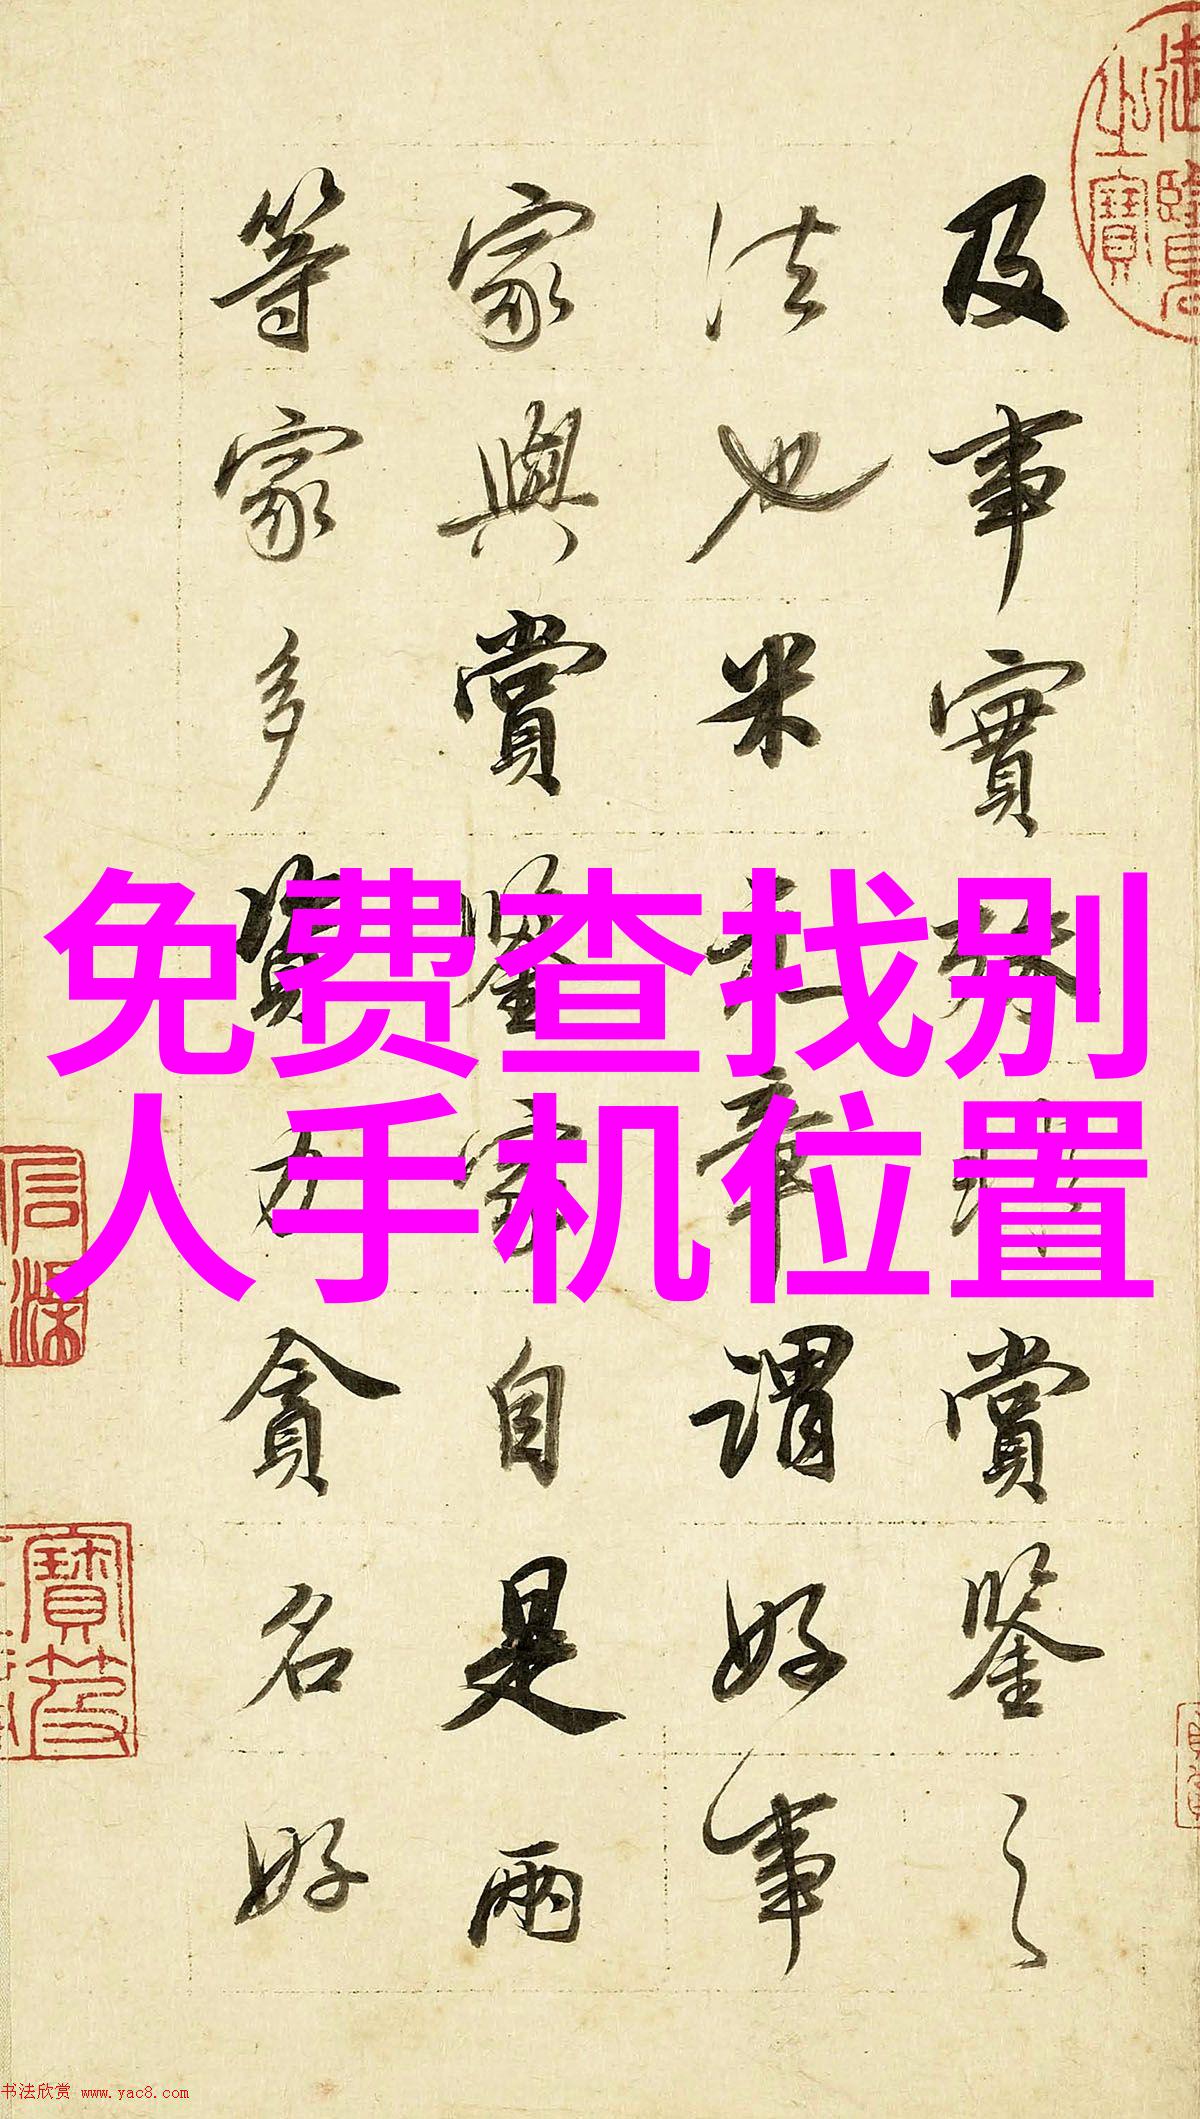 及事實發揮賞鑒之
法也米元章謂好事
家與賞鑒家自是兩
等家多資力貪名好
免费查找别
人手机位置
书法欣赏 www.yac8.com